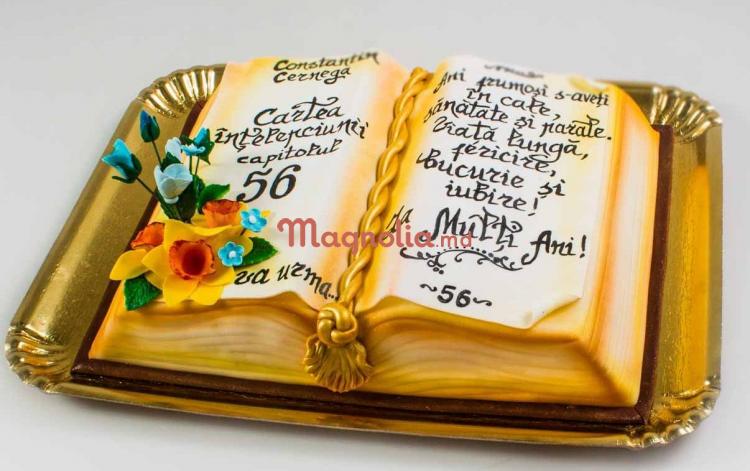 Constantin
Cernega
Cartea
înțelepciunii
capitolul
56
va urma...
Ani frumoși s-aveți
în cale,
sănătate și parale.
Viață lungă,
fericire,
bucurie și
iubire!
La Mulți Ani!
~56~
Magnolia.md